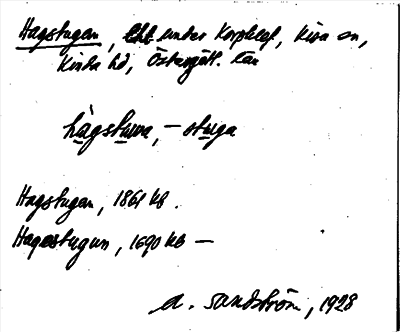 Hagstugan, lht under Korpklef, Kisa sn,
Kinda hd, Östergötl. län
hàgstuwa, – stuga
Hagstugan, 1861 kb.
Hagestugun, 1690 KB —
A. Sandström, 1928